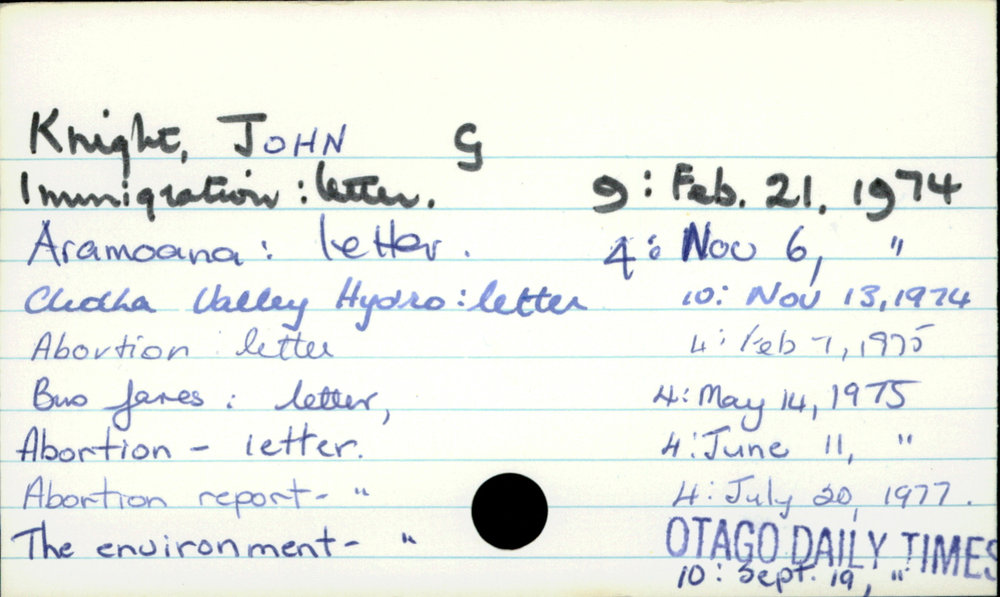 Knight, JOHN G
Immigration : letter. 9 : Feb. 21, 1974
Aramoana : letter. 4 : Nov 6, "
Clutha Valley Hydro : letter 10 : Nov 13, 1974
Abortion : letter 4 : Feb 7, 1975
Bus fares : letter, 4 : May 14, 1975
Abortion - letter. 4 : June 11, "
Abortion report - " 4 : July 20, 1977.
The environment - " 10 : Sept. 19, "
OTAGO DAILY TIMES